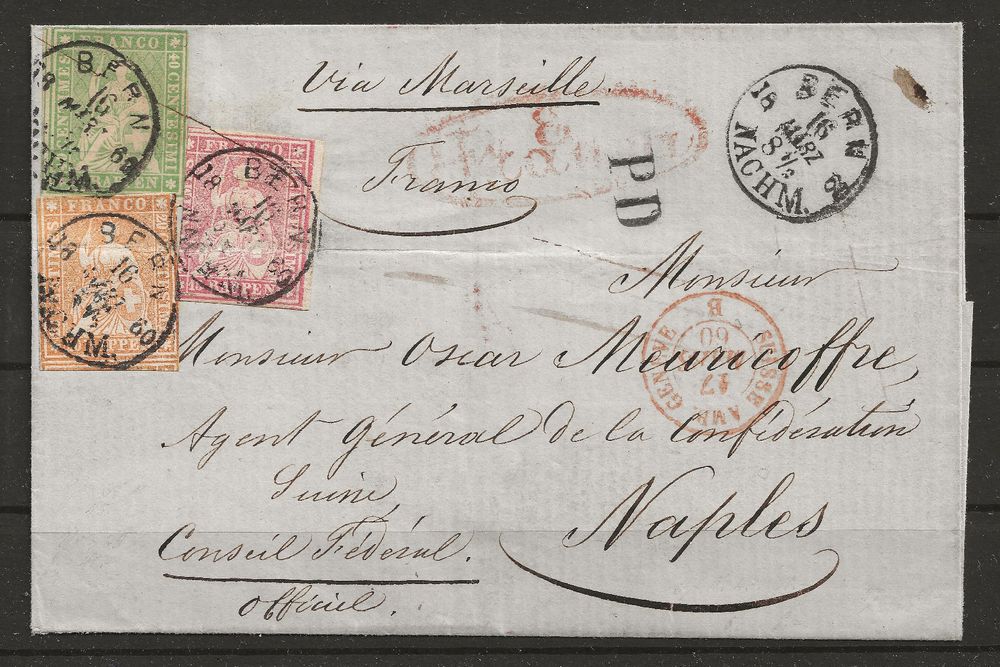 FRANCO
40 CENTESIMI
RAPPEN
FRANCO
RAPPEN
FRANCO
RAPPEN
BERN
16
MÄRZ
60
NACHM.
BERN
16
MÄRZ
8½
18
60
NACHM.
Via Marseille.
Franco
PD
SUISSE AMB. GENÈVE
17
60
B
Monsieur
Monsieur Oscar Meuricoffre,
Agent Général de la Confédération
Suisse,
Naples
Conseil Fédéral.
Officiel.